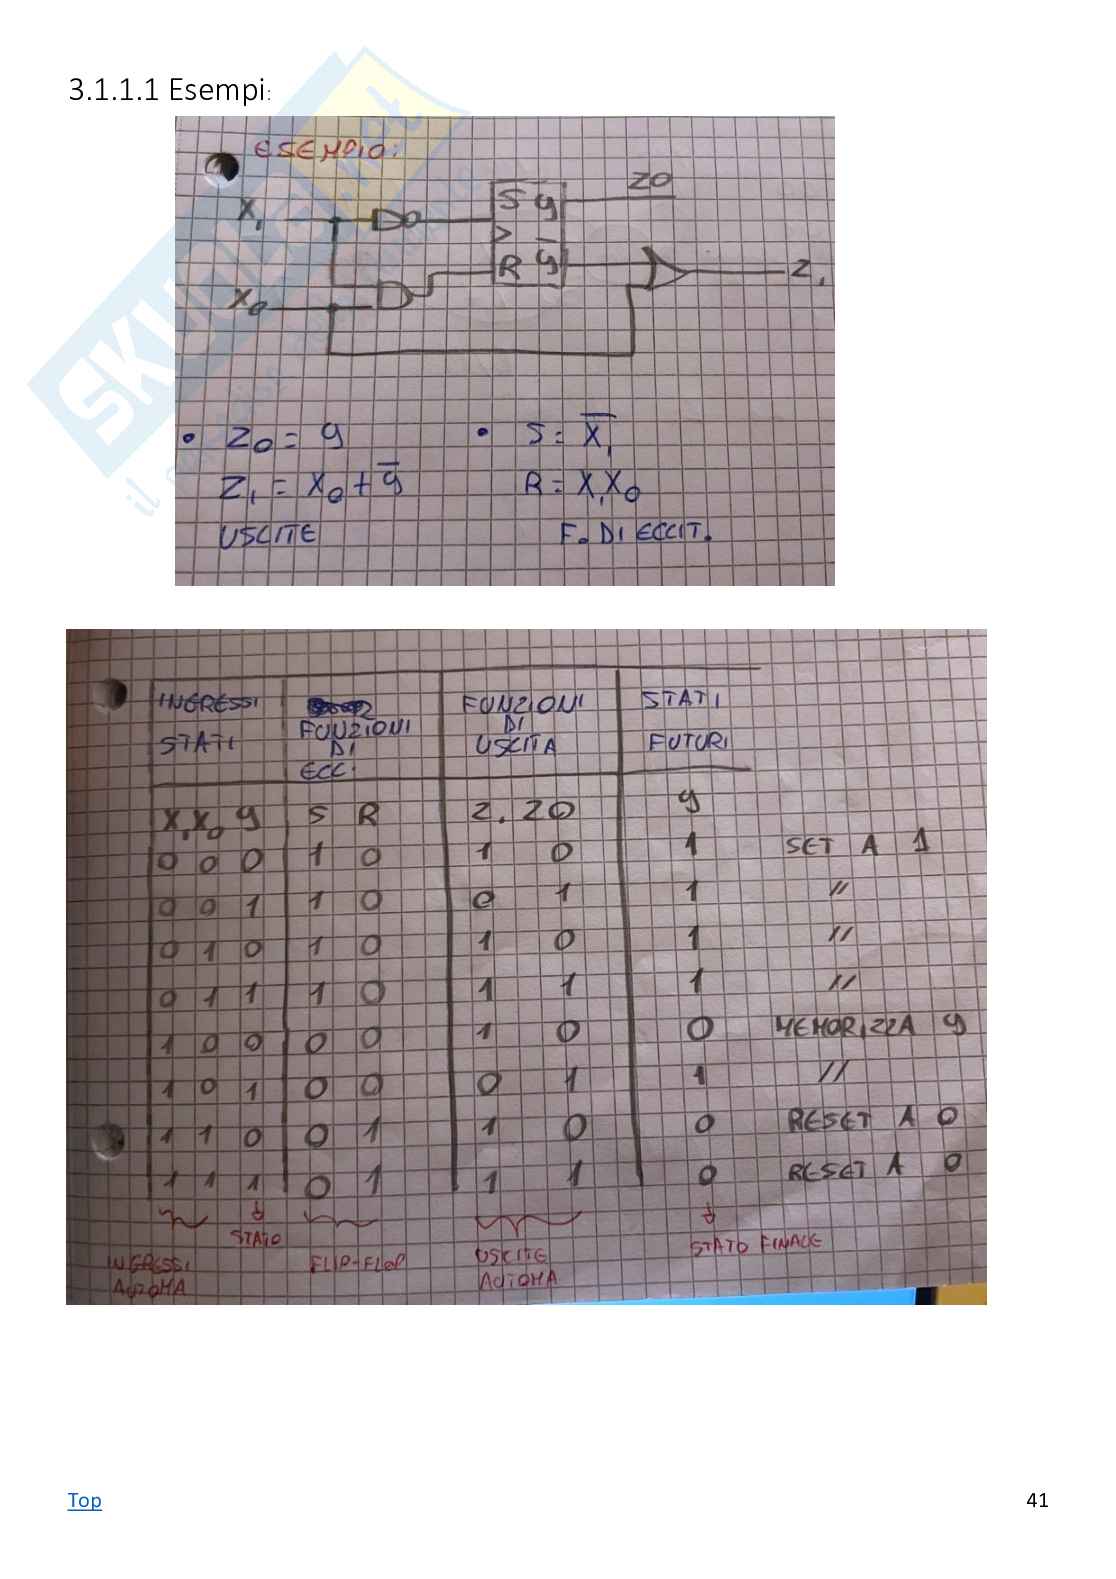 3.1.1.1 Esempi:
SKUOLA.net
ESEMPIO:
X1
X0
S y
R y̅
Z0
Z1
• Z0 = y • S = X̅1
Z1 = X0 + y̅ R = X1X0
USCITE F. DI ECCIT.
INGRESSI FUNZIONI STATI
STATI FUNZIONI DI DI USCITA FUTURI
ECC.
X1 X0 y S R Z1 Z0 y
0 0 0 1 0 1 0 1 SET A 1
0 0 1 1 0 0 1 1 //
0 1 0 1 0 1 0 1 //
0 1 1 1 0 1 1 1 //
1 0 0 0 0 1 0 0 MEMORIZZA y
1 0 1 0 0 0 1 1 //
1 1 0 0 1 1 0 0 RESET A 0
1 1 1 0 1 1 1 0 RESET A 0
STATO
INGRESSI FLIP-FLOP USCITE STATO FINALE
AUTOMA AUTOMA
Top 41